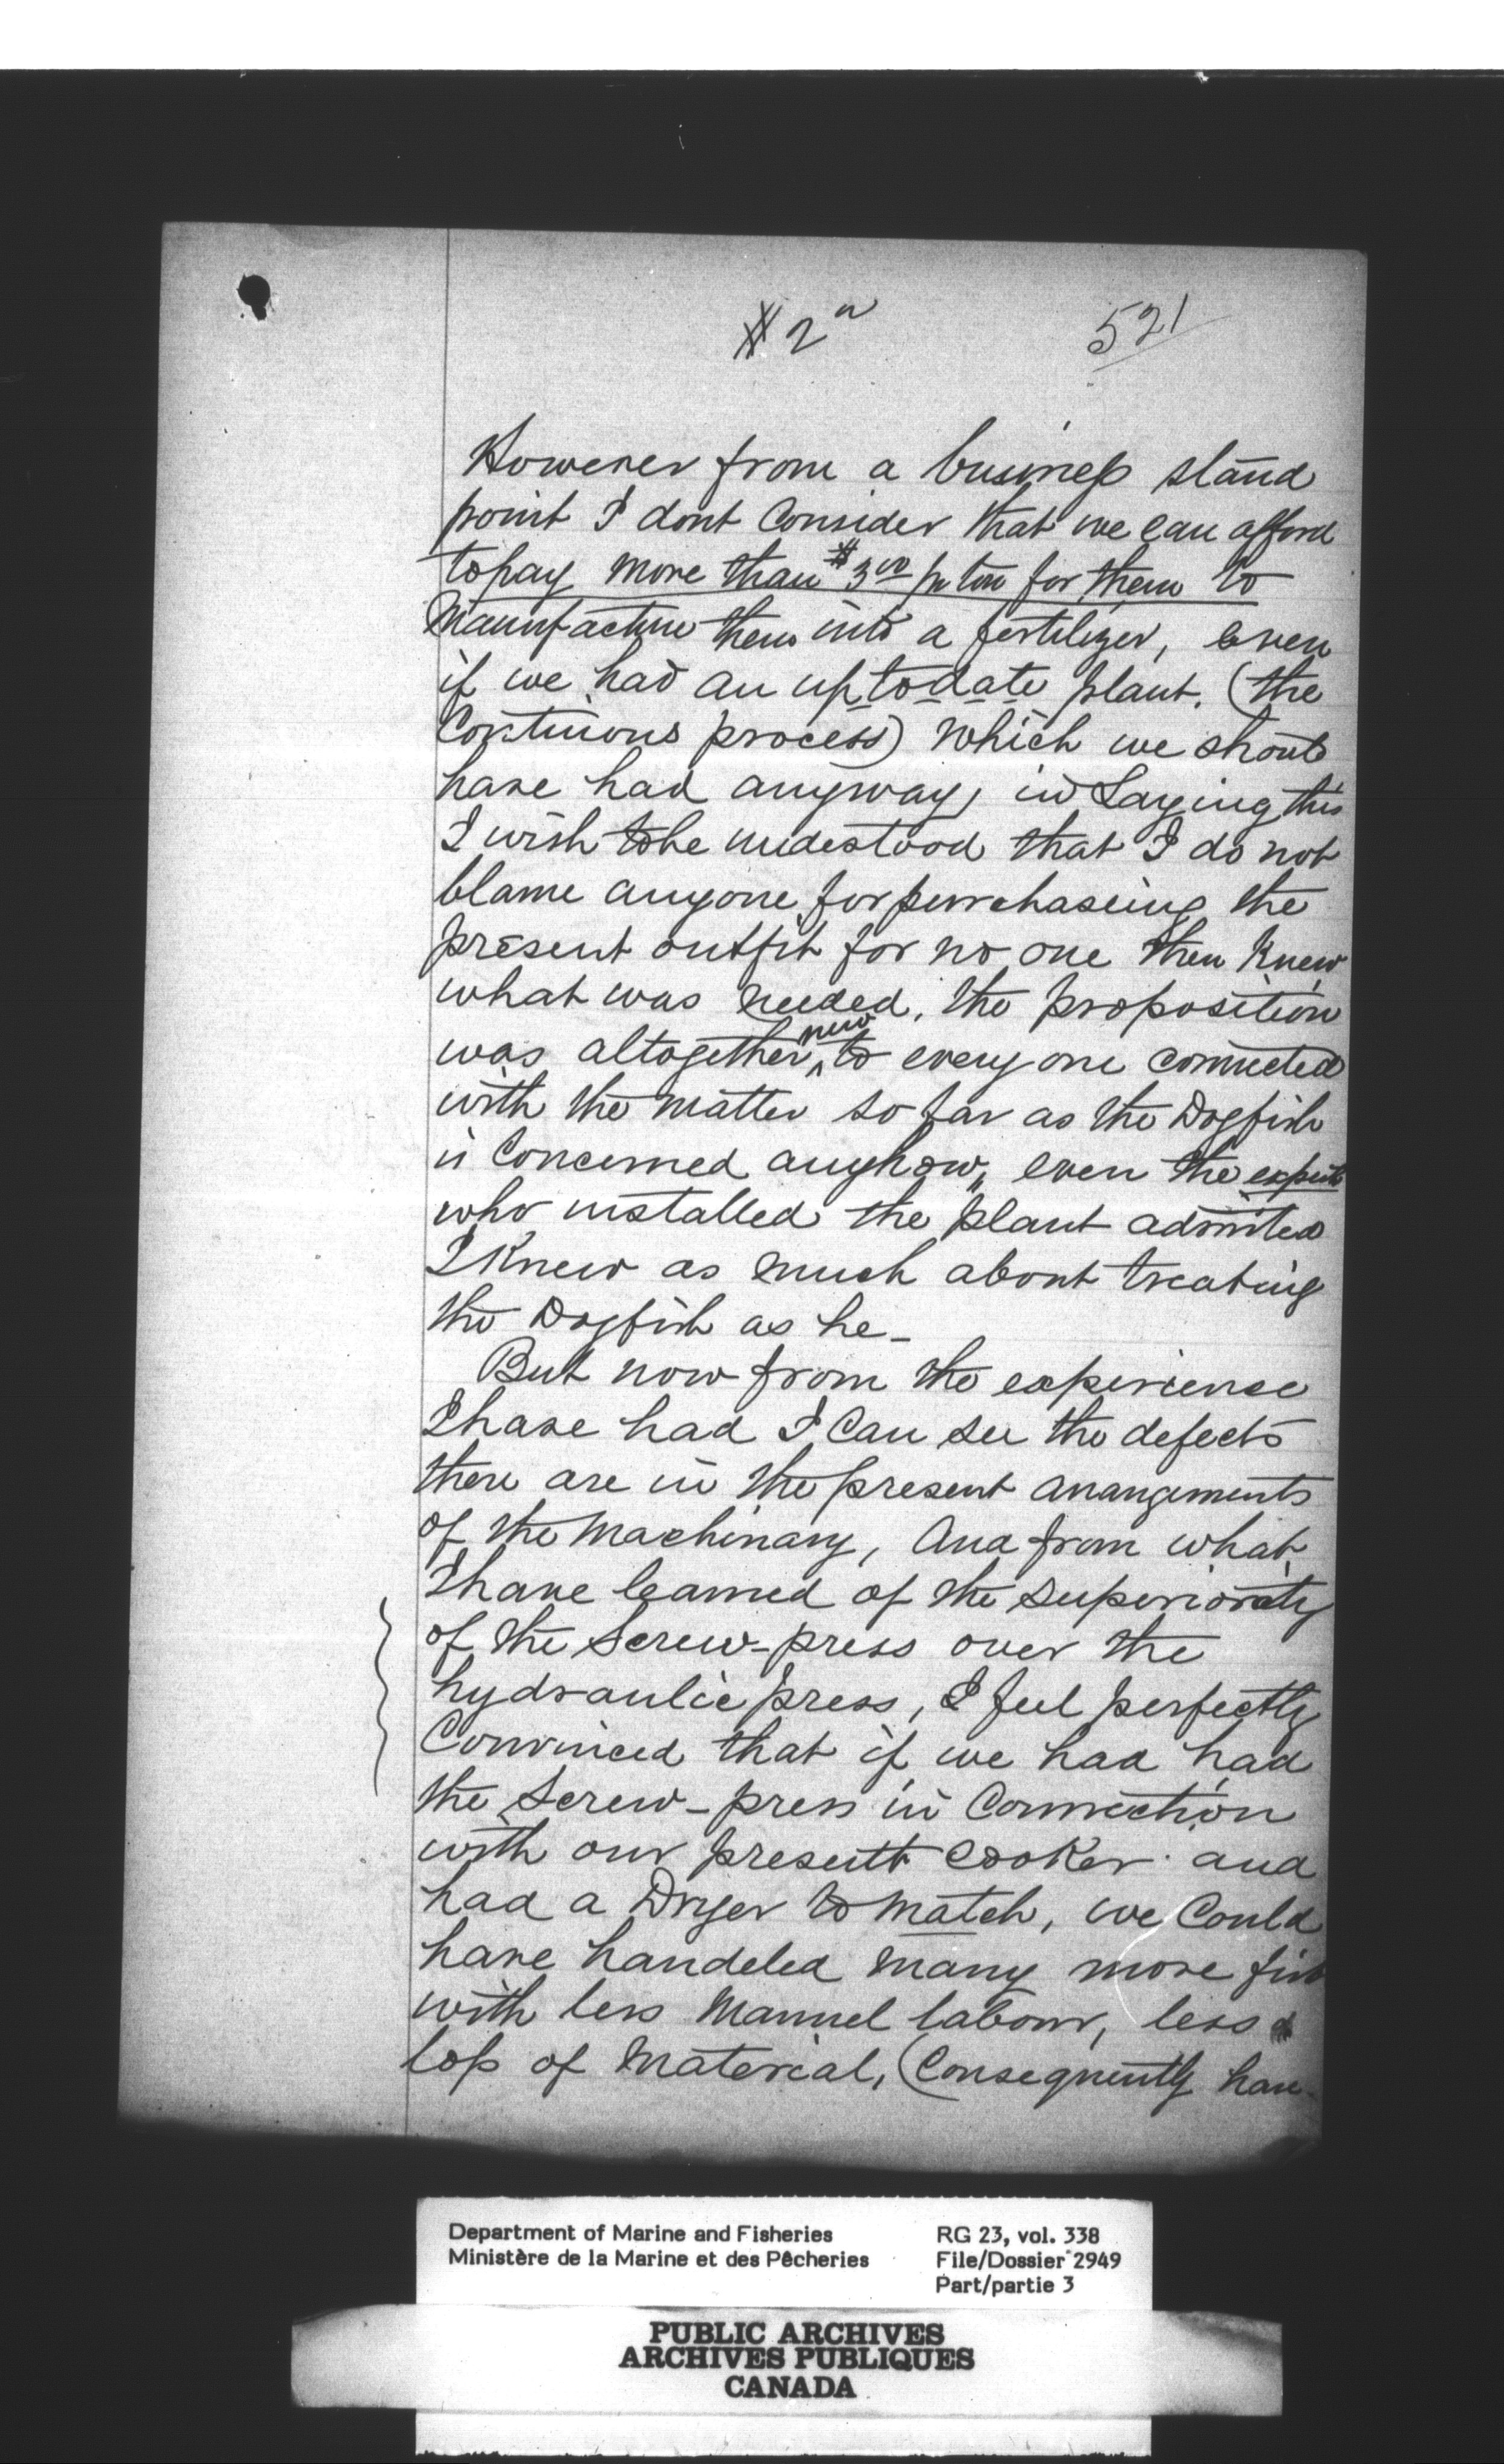 #2
521
However from a business stand
point I dont Consider that we can afford
to pay more than $3.00 pr ton for them to
Manufacture them into a fertilizer, even
if we had an up to date plant. (the
Continuous process) which we should
have had anyway, in Saying this
I wish to be understood that I do not
blame anyone for purchaseing the
present outfit for no one then Knew
what was needed, the proposition
was altogether new to every one connected
with the matter so far as the Dogfish
is Concerned anyhow, even the expert
who installed the plant admited
I Knew as much about treating
the Dogfish as he -
But now from the experience
I have had I Can see the defects
there are in the present arangements
of the Machinary, And from what
I have learned of the superiority
of the Screw-press over the
hydraulic press, I feel perfectly
Convinced that if we had had
the Screw-press in Connection
with our present Cooker and
had a Dryer to match, we Could
have handeled many more fish
with less Manuel labour, less
loss of Material, (Consequently have
Department of Marine and Fisheries
Ministère de la Marine et des Pêcheries
RG 23, vol. 338
File/Dossier 2949
Part/partie 3
PUBLIC ARCHIVES
ARCHIVES PUBLIQUES
CANADA